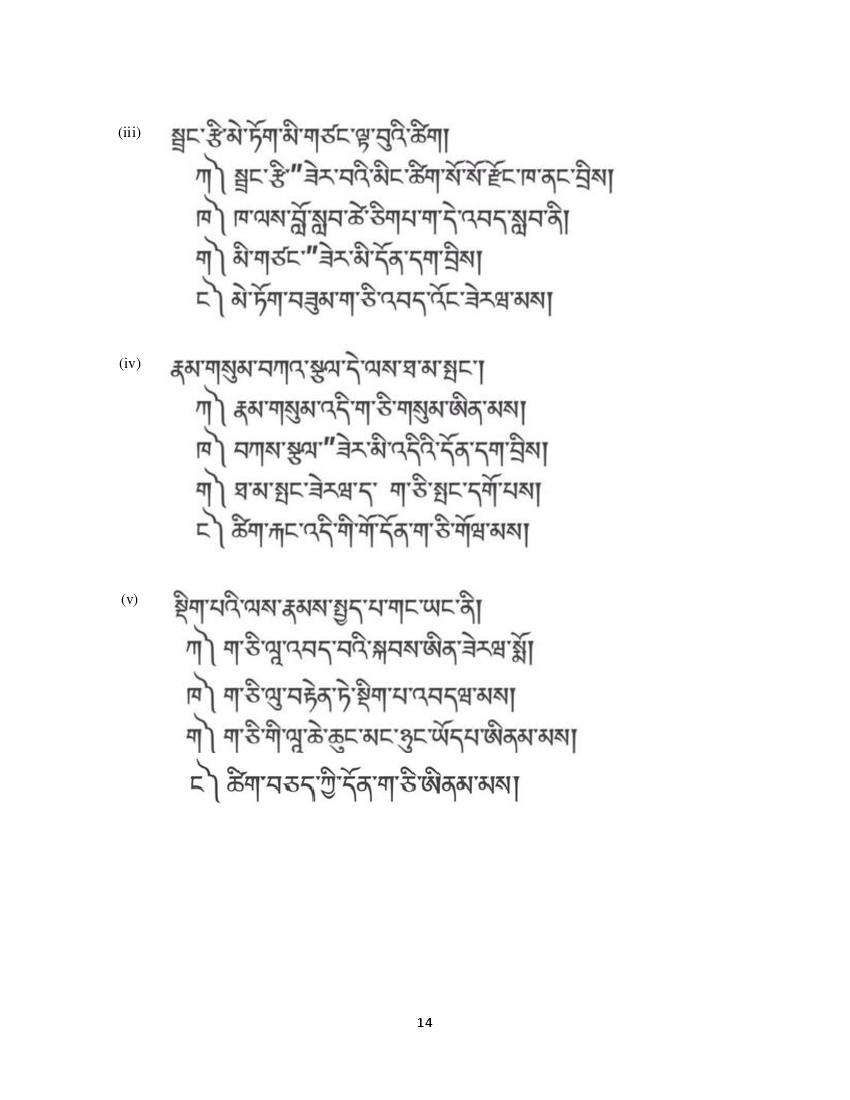 (iii) སྦྲང་རྩི་མེ་ཏོག་མི་གཙང་ལྟ་བུའི་ཚིག།
ཀ༽ སྦྲང་རྩི་"ཟེར་བའི་མིང་ཚིག་སོ་སོ་རྫོང་ཁ་ནང་བྲིས།
ཁ༽ ཁ་ལས་བློ་སླབ་ཚེ་ཅིགཔ་ག་དེ་འབད་སླབ་ནི།
ག༽ མི་གཙང་"ཟེར་མི་དོན་དག་བྲིས།
ང༽ མེ་ཏོག་བཟུམ་ག་ཅི་འབད་འོང་ཟེརཝ་མས།
(iv) རྣམ་གསུམ་བཀའ་སྩལ་དེ་ལས་ཐ་མ་སྤང་།
ཀ༽ རྣམ་གསུམ་འདི་ག་ཅི་གསུམ་ཨིན་མས།
ཁ༽ བཀས་སྩལ་"ཟེར་མི་འདིའི་དོན་དག་བྲིས།
ག༽ ཐ་མ་སྤང་ཟེརཝ་ད་ ག་ཅི་སྤང་དགོ་པས།
ང༽ ཚིག་རྐང་འདི་གི་གོ་དོན་ག་ཅི་གོཝ་མས།
(v) སྡིག་པའི་ལས་རྣམས་སྤྱད་པ་གང་ཡང་ནི།
ཀ༽ ག་ཅི་ལཱ་འབད་བའི་སྐབས་ཨིན་ཟེརཝ་སྨོ།
ཁ༽ ག་ཅི་ལུ་བརྟེན་ཏེ་སྡིག་པ་འབདཝ་མས།
ག༽ ག་ཅི་གི་ལཱ་ཆེ་ཆུང་མང་ཉུང་ཡོདཔ་ཨིནམ་མས།
ང༽ ཚིག་བཅད་ཀྱི་དོན་ག་ཅི་ཨིནམ་མས།
14